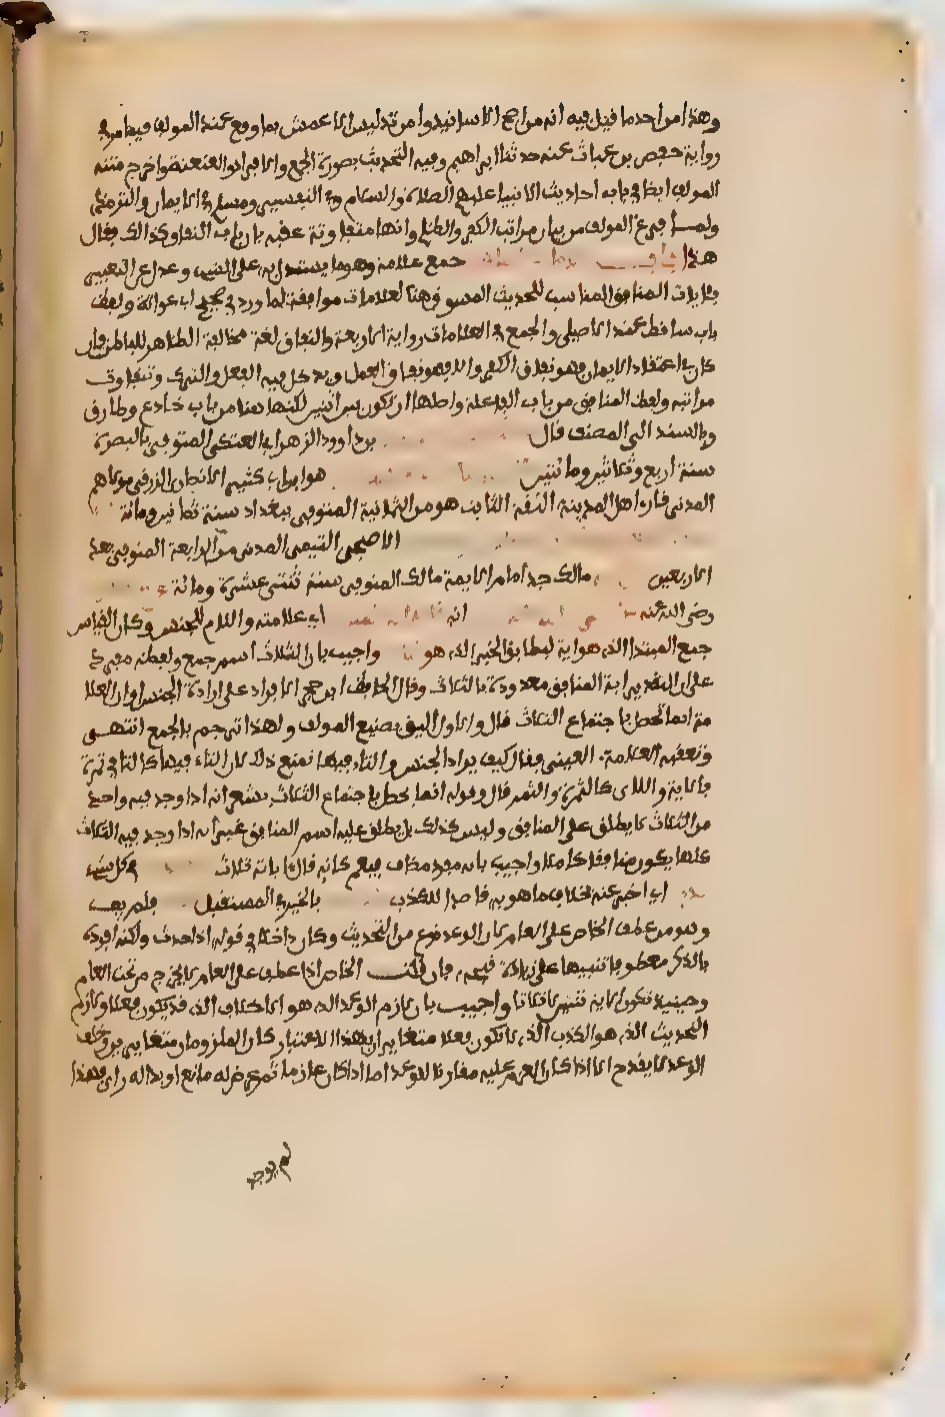 وهذا من احد ما قيل فيه انه من اصح الاسانيد وامن تدليس الاعمش بما وقع عند المولف فيما مر في
رواية حفص بن غياث عنه حدثنا ابراهيم وفيه التحديث بصورة الجمع والافراد والعنعنة واخرج متنه
المولف ايضا في باب احاديث الانبيا عليهم الصلاة والسلام وفي التفسير ومسلم في الايمان والترمذي
ولمــا فرغ المولف من بيان مراتب الكفر والظلم وانها متفاوتة عقبه بان باب النفاق كذالك فقال
هذا باب جمع علامة وهو ما يستدل به على الشيء وعدل عن التعبير
بئايات المنافق المناسب للحديث المسوق هنا لعلامات موافقة لما ورد في صحيح اب عوانة ولفظ
باب ساقط عند الاصيلي والجمع في العلامات رواية الاربعة والنفاق لغة مخالفة الظاهر للباطن فان
كان في اعتقاد الايمان فهو نفاق الكفر والا فهو نفاق العمل ويدخل فيه الفعل والترك وتتفاوت
مراتبه ولفظ المنافق من باب المفاعلة واصلها ان تكون بين اثنين لكنها هنا من باب خادع وطارق
وبالسند الى المصنف قال بن داوود الزهراني العتكي المتوفى بالبصرة
سنة اربع وثلاثين ومائتين هو ابن اب كثير الانصاري الزرقي مولاهم
المدني قارئ اهل المدينة الثقة الثابت هو من الثامنة المتوفى ببغداد سنة ثمانين ومائة
الاصبحي التيمي المدني من الرابعة المتوفى بعد
الاربعين مالك جد امام الايمة مالك المتوفى سنة ثنتي عشرة ومائة
رضي الله عنه انه اي علامته واللام للجنس وكان القياس
جمع المبتدا الذي هو اية ليطابق الخبر الذي هو واجيب بان الثلاث اسم جمع ولفظه مفرد
على ان التقدير اية المنافق معدودة بالثلاث وقال الحافظ ابن حجر الافراد على ارادة الجنس او ان العلا
مة انما تحصل باجتماع الثلاث قال والاول اليق بصنيع المولف ولهذا ترجم بالجمع انتهــى
وتعقبه العلامة العيني فقال كيف يراد الجنس والتاء فيها تمنع ذلك لان التاء فيها كالتاء في تمرة
فالاية والاي كالتمرة والتمر قال وقوله انما تحصل باجتماع الثلاث يشعر انه اذا وجد فيه واحد
من الثلاث لا يطلق على المنافق وليس كذلك بل يطلق عليه اسم المنافق غير انه اذا وجد فيه الثلاث
كلها يكون منافقا كاملا واجيب بانه مفرد مضاف فيعم كانه قال ءاياته ثلاث في كل شيء
اي اخبر عنه بخلاف ما هو به قاصدا للكذب بالخير في المستقبل فلم يف
وهو من عطف الخاص على العام لان الوعد نوع من التحديث وكان داخلا في قوله اذا حدث ولكنه افرده
بالذكر معطوفا تنبيها على زيادة قبحه فان قلــت الخاص اذا عطف على العام لا يخرج من تحت العام
وحينيذ تكون الاية ثنتين لا ثلاثا واجيب بان لازم الوعد الذي هو الاخلاف الذي قد يكون فعلا ولازم
التحديث الذي هو الكذب الذي لا يكون فعلا متغايران بهذا الاعتبار كان الملزومان متغايرين وخلف
الوعد لا يقدح الا اذا كان العزم عليه مقارنا للوعد اما اذا كان عازما ثم عرض له مانع او بدا له راي فهذا
لم يوجد